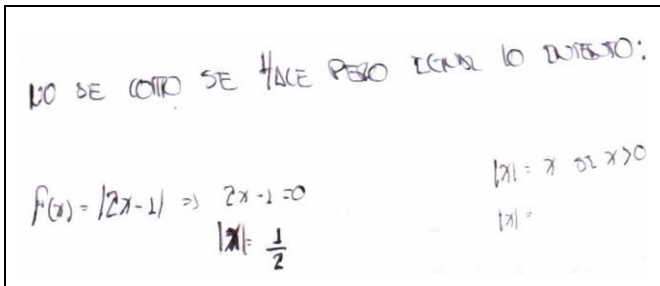 NO SE COMO SE HACE PERO IGUAL LO INTENTO:
f(x) = |2x-1| => 2x-1=0
|x| = 1/2
|x| = x si x>0
|x| =